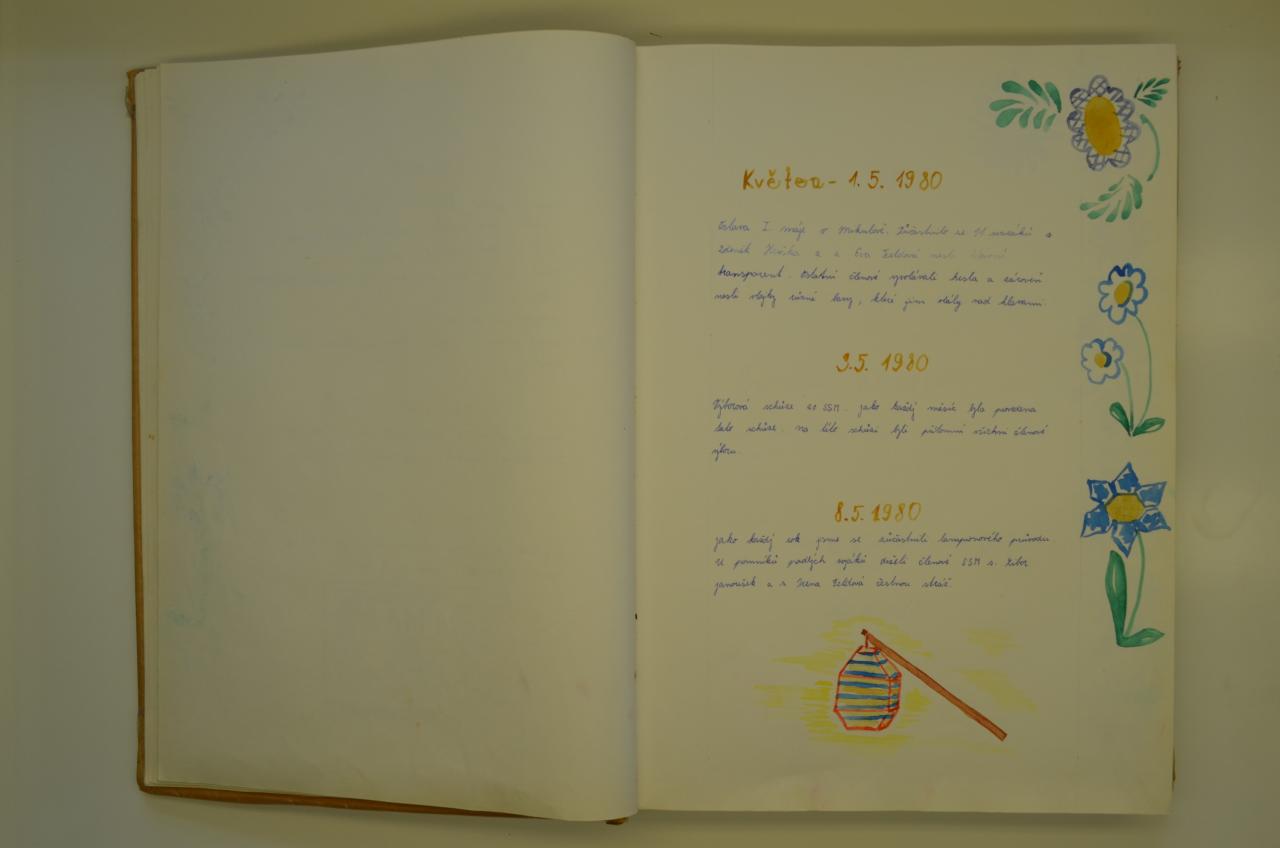 Květen - 1. 5. 1980
Oslava I. máje v Mikulově. Zúčastnilo se svazáků a
Zdeněk a a Eva Zeldová nesli
transparent. Ostatní členové vyvolávali hesla a zároveň
nesli vlajky různé barvy, které jim vlály nad hlavami.
3.5. 1980
Výborová schůze SSM. jako každý měsíc byla provedena
tato schůze. na této schůzi byli přítomni všichni členové
výboru.
8.5. 1980
jako každý rok jsme se zúčastnili lampionového průvodu.
U pomníků padlých vojáků drželi členové SSM s. Libor
janoušek a s Irena Zeldová čestnou stráž.